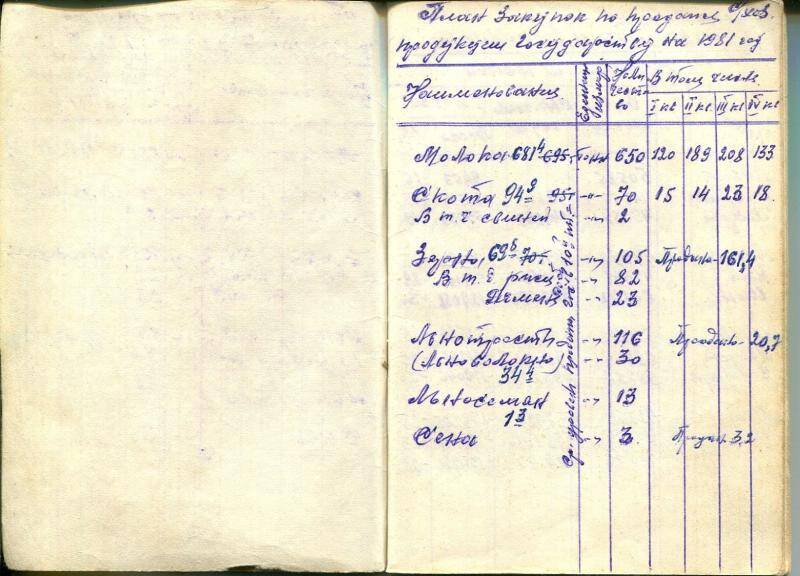 План Закупок по продаже с/хоз.
продукции Государству на 1981 год
Наименования Единица измер. Коли чество В том числе
I кв II кв III кв IV кв
Молока 681⁴ 695 тонн 650 120 189 208 133
Скота 94⁹ 95 -"- 70 15 14 23 18
В т.ч. свиней -"- 2
Зерно, 69⁵ 70 -"- 105 Продано 161,4
В т.ч рожь -"- 82
Ячмень -"- 23
Льнотресты -"- 116 Продано 20,7
(Льноволокно) -"- 30
34⁴
Льносемян -"- 13
1³
Сена -"- 3 Продан 3,2